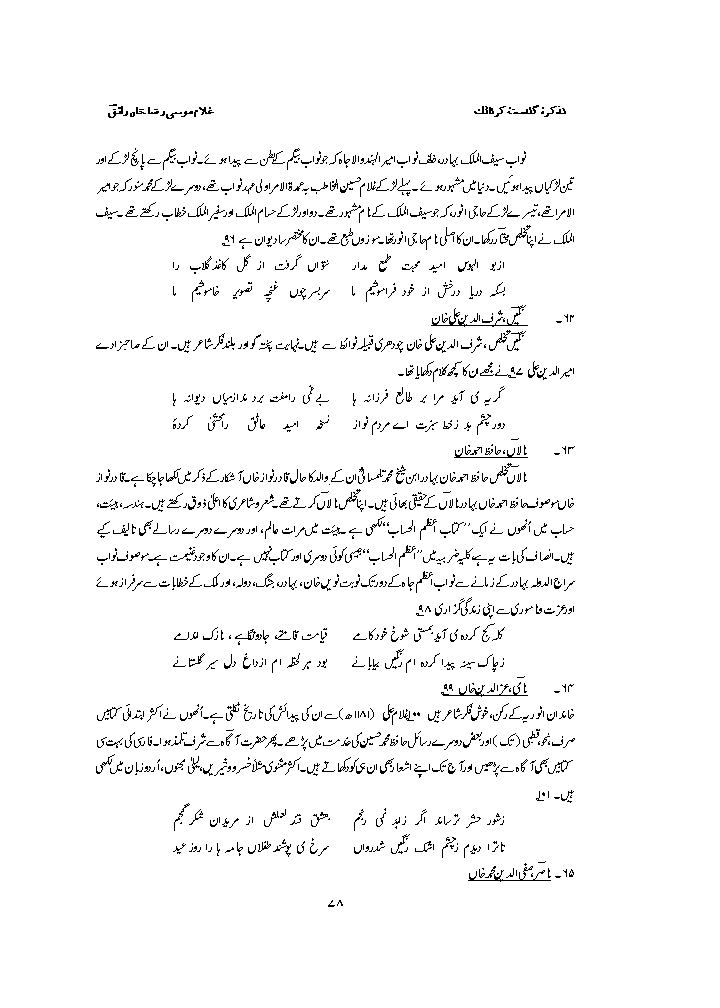 تذکرۂ گلدستۂ کرناٹک
غلام موسیٰ رضا خاں رائقؔ
نواب سیف الملک بہادر، خلف نواب امیر الہند والا جاہ کہ جو نواب بیگم کے بطن سے پیدا ہوئے۔ نواب بیگم سے پانچ لڑکے اور
تین لڑکیاں پیدا ہوئیں۔ دنیا میں مشہور ہوئے۔ پہلے لڑکے غلام حسین المخاطب بہ عمدۃ الامرا ولی عہد نواب تھے، دوسرے لڑکے محمد منور کہ جو امیر
الامرا تھے، تیسرے لڑکے حاجی انور، کہ جو سیف الملک کے نام مشہور تھے۔ دو اور لڑکے حسام الملک اور سفیر الملک خطاب رکھتے تھے۔ سیف
الملک نے اپنا تخلص مختارؔ رکھا۔ ان کا اصلی نام حاجی انور تھا۔ موزوں طبع تھے۔ ان کا مختصر سا دیوان ہے ۹۶
ازبو الہوس امید محبت طمع مدار نتواں گرفت از گل کاغذ گلاب را
بسکہ دریا درخش از خود فراموشیم ما سربسر چوں غنچہ تصویر خاموشیم ما
۶۲۔ نگیںؔ، شرف الدین علی خان
نگیںؔ تخلص، شرف الدین علی خان چودھری قبیلہ نوائط سے ہیں۔ نہایت پختہ گو اور بلند فکر شاعر ہیں۔ ان کے صاحبزادے
امیر الدین علی ۹۷ نے مجھے ان کا کچھ کلام دکھایا تھا۔
گریہ می آید مرا بر طالع فرزانہ ہا بے غمی رامفت برد مدازمیاں دیوانہ ہا
دور چشم بد زخط سبزت اے مردم نواز نسخہ امید عاشق رامحشیٰ کردۂ
۶۳۔ نالاںؔ، حافظ احمد خان
نالاںؔ تخلص حافظ احمد خان بہادر ابن شیخ محمد تلمسانیؒ ان کے والد کا حال قادر نواز خاں آشکار کے ذکر میں لکھا جا چکا ہے۔ قادر نواز
خاں موصوف حافظ احمد خاں بہادر نالاںؔ کے حقیقی بھائی ہیں۔ اپنا تخلص نالاںؔ کرتے تھے۔ شعر و شاعری کا اعلیٰ ذوق رکھتے ہیں۔ ہندسہ، ہیئت،
حساب میں اُنھوں نے ایک ’’کتاب اعظم الحساب‘‘ لکھی ہے۔ ہیئت میں مرات عالم، اور دوسرے دوسرے رسالے بھی تالیف کیے
ہیں۔ انصاف کی بات یہ ہے کلیہ ضربیہ میں ’’اعظم الحساب‘‘ جیسی کوئی دوسری اور کتاب نہیں ہے۔ ان کا وجود غنیمت ہے۔ موصوف نواب
سراج الدولہ بہادر کے زمانے سے نواب اعظم جاہ کے دور تک نوبت نویں خان، بہادر، جنگ، دولہ، اور ملک کے خطابات سے سرفراز ہوئے
اور عزت و ناموری سے اپنی زندگی گزاری ۹۸
کلہ کج کردہ می آید بمستی شوخ خودکامے قیامت قامتے، جادو نگاہے، نازک اندامے
زچاک سینہ پیدا کردہ ام رنگیں بیابانے بود ہر لحظہ ام از داغ دل سیر گلستانے
۶۴۔ نامیؔ، عزالدین خاں ۹۹
خاندان انوریہ کے رکن، خوش فکر شاعر ہیں ۱۰۰ غلام علی (۱۱۸۱ھ) سے ان کی پیدائش کی تاریخ نکلتی ہے۔ اُنھوں نے اکثر ابتدائی کتابیں
صرف، نحو، قطبی (تک) اور بعض دوسرے رسائل حافظ محمد حسین کی خدمت میں پڑھے۔ پھر حضرت آگاہ سے شرف تلمذ ہوا۔ فارسی کی بہت سی
کتابیں بھی آگاہ سے پڑھیں اور آج تک اپنے اشعار بھی ان ہی کو دکھاتے ہیں۔ اکثر مثنوی مثلاً خسرو و شیریں، لیلیٰ مجنوں، اُردو زبان میں لکھی
ہیں۔ ۱۰۱
زشور حشر ترساند اگر زاہد نمی رنجم بعشق قند لعلش از مریدان شکر گنجم
تاترا دیدم زچشم اشک رنگیں شدرواں سرخ می پوشند طفلاں جامہ ہا را روز عید
۶۵۔ ناصرؔ، صفی الدین محمد خاں
۷۸